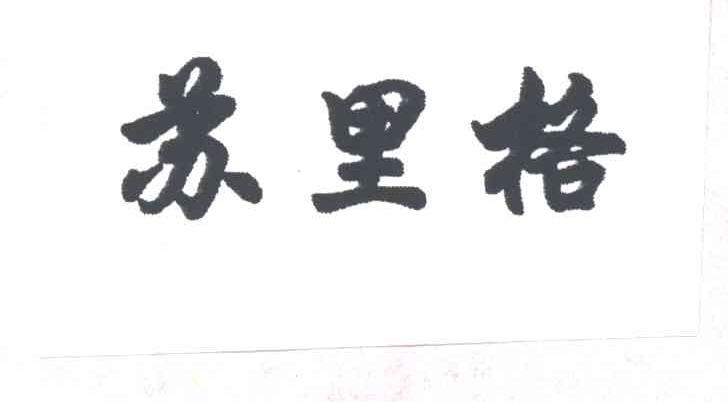 苏里格